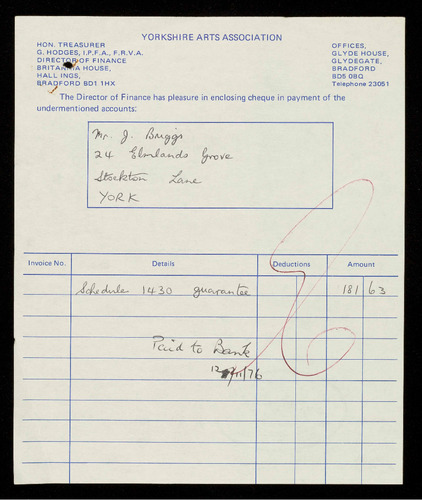 YORKSHIRE ARTS ASSOCIATION
HON. TREASURER
G. HODGES, I.P.F.A., F.R.V.A.
DIRECTOR OF FINANCE
BRITANNIA HOUSE,
HALL INGS,
BRADFORD BD1 1HX
OFFICES,
GLYDE HOUSE,
GLYDEGATE,
BRADFORD
BD5 0BQ
Telephone 23051
The Director of Finance has pleasure in enclosing cheque in payment of the
undermentioned accounts:
Mr. J. Briggs
24 Elmlands Grove
Stockton Lane
YORK
Invoice No. Details Deductions Amount
Schedule 1430 guarantee 181 63
Paid to Bank
12/11/76